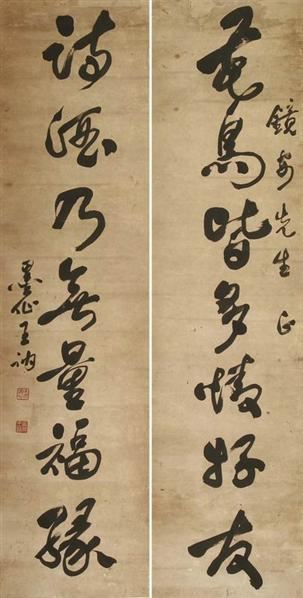 鏡安先生正
花鳥皆多情好友
詩酒乃無量福緣
墨仙王訥